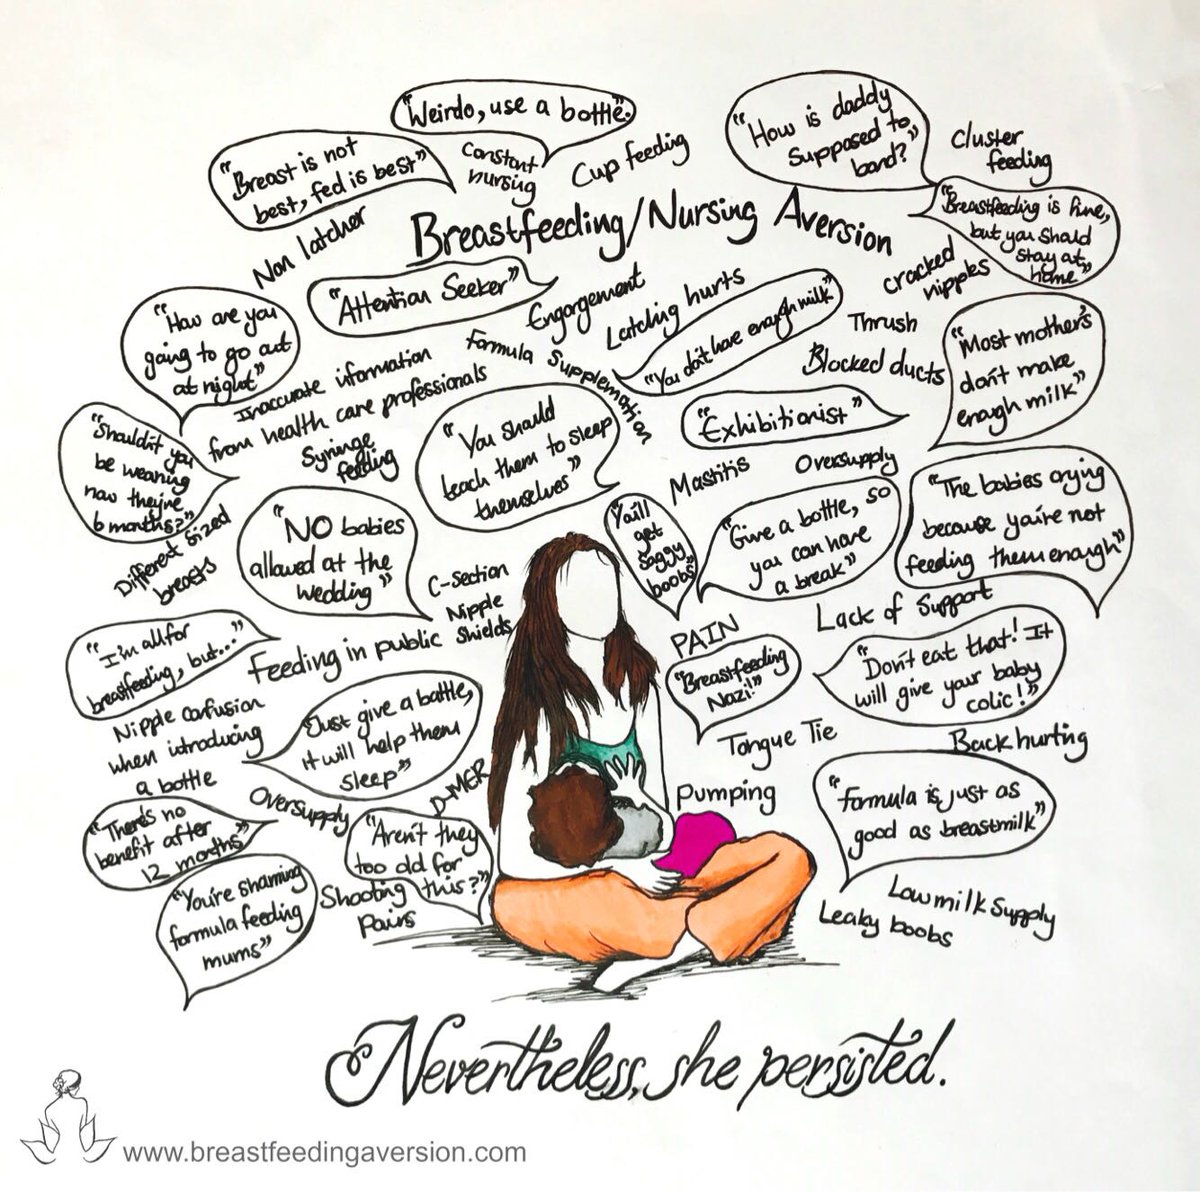 "Weirdo, use a bottle."
"Breast is not
best, fed is best"
Constant
nursing
Cup feeding
"How is daddy
supposed to
bond?"
Cluster
feeding
Non latcher
Breastfeeding/Nursing Aversion
"Breastfeeding is fine,
but you should
stay at
home"
cracked
nipples
"Attention Seeker"
Engorgement
Latching hurts
"You don't have enough milk"
Thrush
"How are you
going to go out
at night"
Inaccurate information
from health care professionals
Formula Supplementation
Blocked ducts
"Most mother's
don't make
enough milk"
Syringe
feeding
"You should
teach them to sleep
themselves"
"Exhibitionist"
Mastitis
Oversupply
"Shouldn't you
be weaning
now they're
6 months?"
Different sized
breasts
"NO babies
allowed at the
wedding"
"You'll
get
saggy
boobs"
"Give a bottle, so
you can have
a break"
"The babies crying
because you're not
feeding them enough"
C-Section
Nipple
Shields
PAIN
Lack of Support
"I'm all for
breastfeeding, but..."
Feeding in public
"Breastfeeding
Nazi!"
"Don't eat that! It
will give your baby
colic!"
Nipple confusion
when introducing
a bottle
"Just give a bottle,
it will help them
sleep"
Tongue Tie
Back hurting
D-MER
Pumping
"There's no
benefit after
12 months"
Oversupply
"Aren't they
too old for
this?"
"Formula is just as
good as breastmilk"
"You're shaming
formula feeding
mums"
Shooting
Pains
Low milk Supply
Leaky boobs
Nevertheless, she persisted.
www.breastfeedingaversion.com